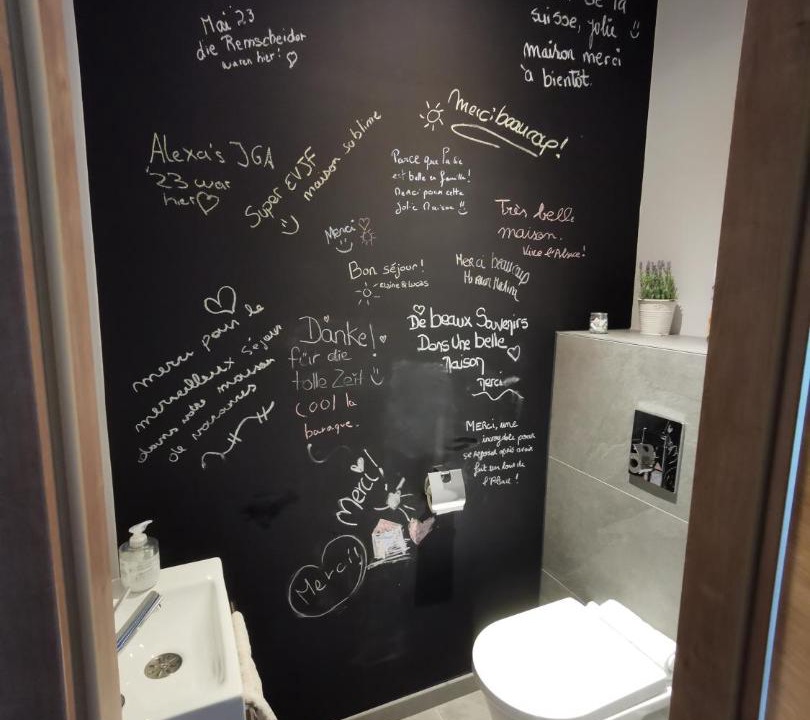 Mai 23
die Remscheider
waren hier! ♡
de la
suisse, jolie
maison merci
à bientôt.
Merci beaucoup!
Alexa's JGA
'23 war
hier ♡
Super EVJF
maison sublime
Parce que la vie
est belle en famille!
Merci pour cette
Jolie Maison
Très belle
maison.
Vive l'Alsace!
Merci
Bon séjour!
Merci beaucoup
merci pour le
merveilleux séjour
dans votre maison
de vacances
Danke!
für die
tolle Zeit
cool la
baraque.
De beaux Souvenirs
Dans Une belle
Maison
Merci
MERCi, une
incroyable
se reposer après avoir
fait un tour de
l'Alsace!
Merci!
Merci!